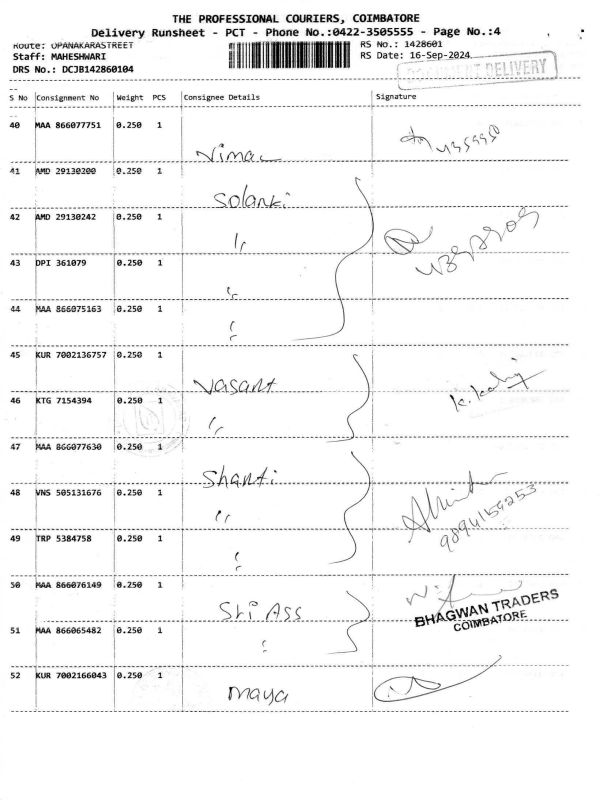 THE PROFESSIONAL COURIERS, COIMBATORE
Delivery Runsheet - PCT - Phone No.:0422-3505555 - Page No.:4
Route: OPANAKARASTREET
RS No.: 1428601
Staff: MAHESHWARI
RS Date: 16-Sep-2024
DRS No.: DCJB142860104
DOCUMENT DELIVERY
S No Consignment No Weight PCS Consignee Details Signature
40 MAA 866077751 0.250 1
Nimal
41 AMD 29130200 0.250 1
Solanki
42 AMD 29130242 0.250 1
"
43 DPI 361079 0.250 1
"
44 MAA 866075163 0.250 1
"
45 KUR 7002136757 0.250 1
Vasant
46 KTG 7154394 0.250 1
"
47 MAA 866077630 0.250 1
Shanti
48 VNS 505131676 0.250 1
"
49 TRP 5384758 0.250 1
9894159253
"
50 MAA 866076149 0.250 1
Sri Ass
BHAGWAN TRADERS
COIMBATORE
51 MAA 866065482 0.250 1
"
52 KUR 7002166043 0.250 1
Maya